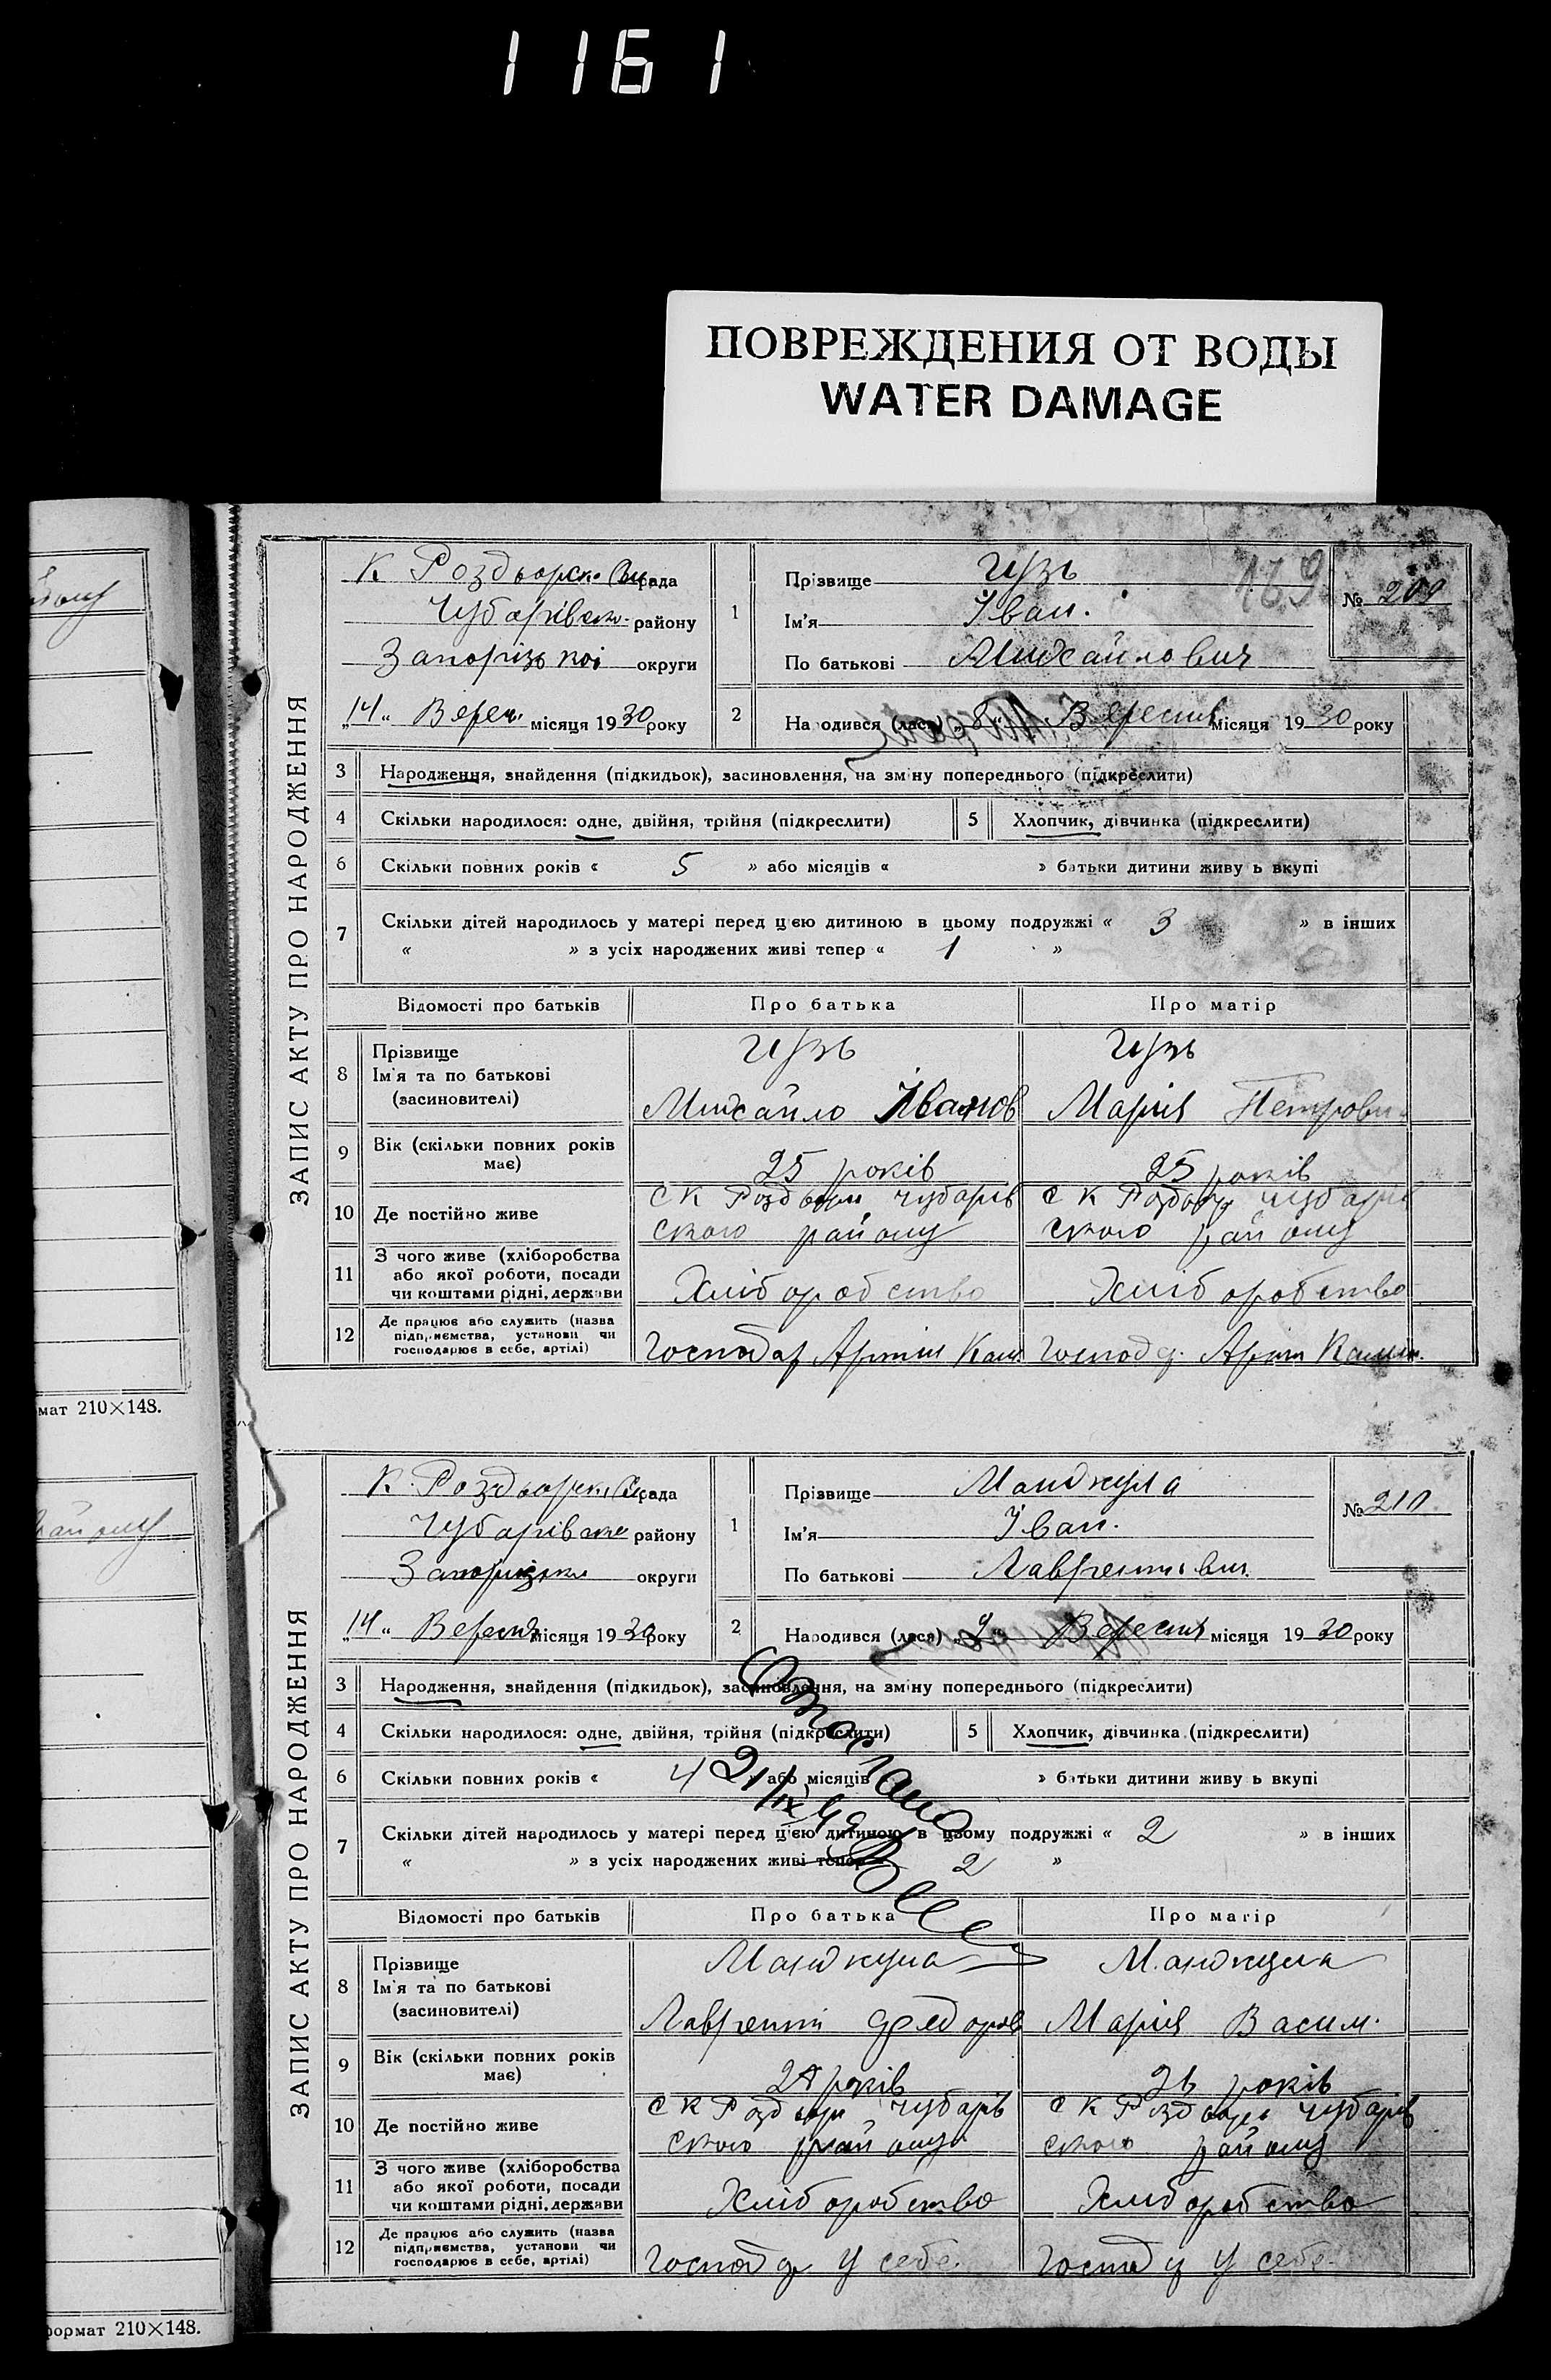 1161
ПОВРЕЖДЕНИЯ ОТ ВОДЫ
WATER DAMAGE
мат 210×148.
формат 210×148.
ЗАПИС АКТУ ПРО НАРОДЖЕННЯ
К Роздорск. рада
Чубарівськ. району
Запорізькоі округи
„14“ Верес. місяця 1930 року
1
Прізвище Гузь
Ім'я Іван.
По батькові Михайлович
169
№ 209
2 Народився (лася) „8“ Вересня місяця 1930 року
3 Народження, знайдення (підкидьок), засиновлення, на зміну попереднього (підкреслити)
4 Скільки народилося: одне, двійня, трійня (підкреслити) 5 Хлопчик, дівчинка (підкреслити)
6 Скільки повних років « 5 » або місяців « » батьки дитини живу ь вкупі
7 Скільки дітей народилось у матері перед цією дитиною в цьому подружжі « 3 » в інших
« » з усіх народжених живі тепер « 1 »
Відомості про батьків Про батька Про матір
8 Прізвище
Ім'я та по батькові
(засиновителі)
Гузь
Михайло Іванов
Гузь
Марія Петрови
9 Вік (скільки повних років має)
25 років 25 років
10 Де постійно живе
с К Роздори чубарів
ского району
с К Роздори чубарів
ского району
11 З чого живе (хліборобства
або якої роботи, посади
чи коштами рідні, держави
Хліборобство Хліборобство
12 Де працює або служить (назва
підприємства, установи чи
господарює в себе, артілі)
Господар Артіл Господ
ЗАПИС АКТУ ПРО НАРОДЖЕННЯ
К. Роздорск. рада
Чубарівське району
Запорізьк округи
„14“ Вересня місяця 1930 року
1
Прізвище Манджула
Ім'я Іван.
По батькові Лаврентьевич
№ 210
2 Народився (лася) „9“ Вересня місяця 1930 року
3 Народження, знайдення (підкидьок), засиновлення, на зміну попереднього (підкреслити)
4 Скільки народилося: одне, двійня, трійня (підкреслити) 5 Хлопчик, дівчинка (підкреслити)
6 Скільки повних років « 4 » або місяців » батьки дитини живу ь вкупі
7 Скільки дітей народилось у матері перед цією дитиною в цьому подружжі « 2 » в інших
« » з усіх народжених живі тепер 2 »
Відомості про батьків Про батька Про матір
8 Прізвище
Ім'я та по батькові
(засиновителі)
Манджула
Лаврентій Федоров
Манджула
Марія Васил.
9 Вік (скільки повних років має)
років 26 років
10 Де постійно живе
с К Роздори чубарів
ского району
с К Роздори чубарів
ского району
11 З чого живе (хліборобства
або якої роботи, посади
чи коштами рідні, держави
Хліборобство Хліборобство
12 Де працює або служить (назва
підприємства, установи чи
господарює в себе, артілі)
Господ У себе. Господ У себе.